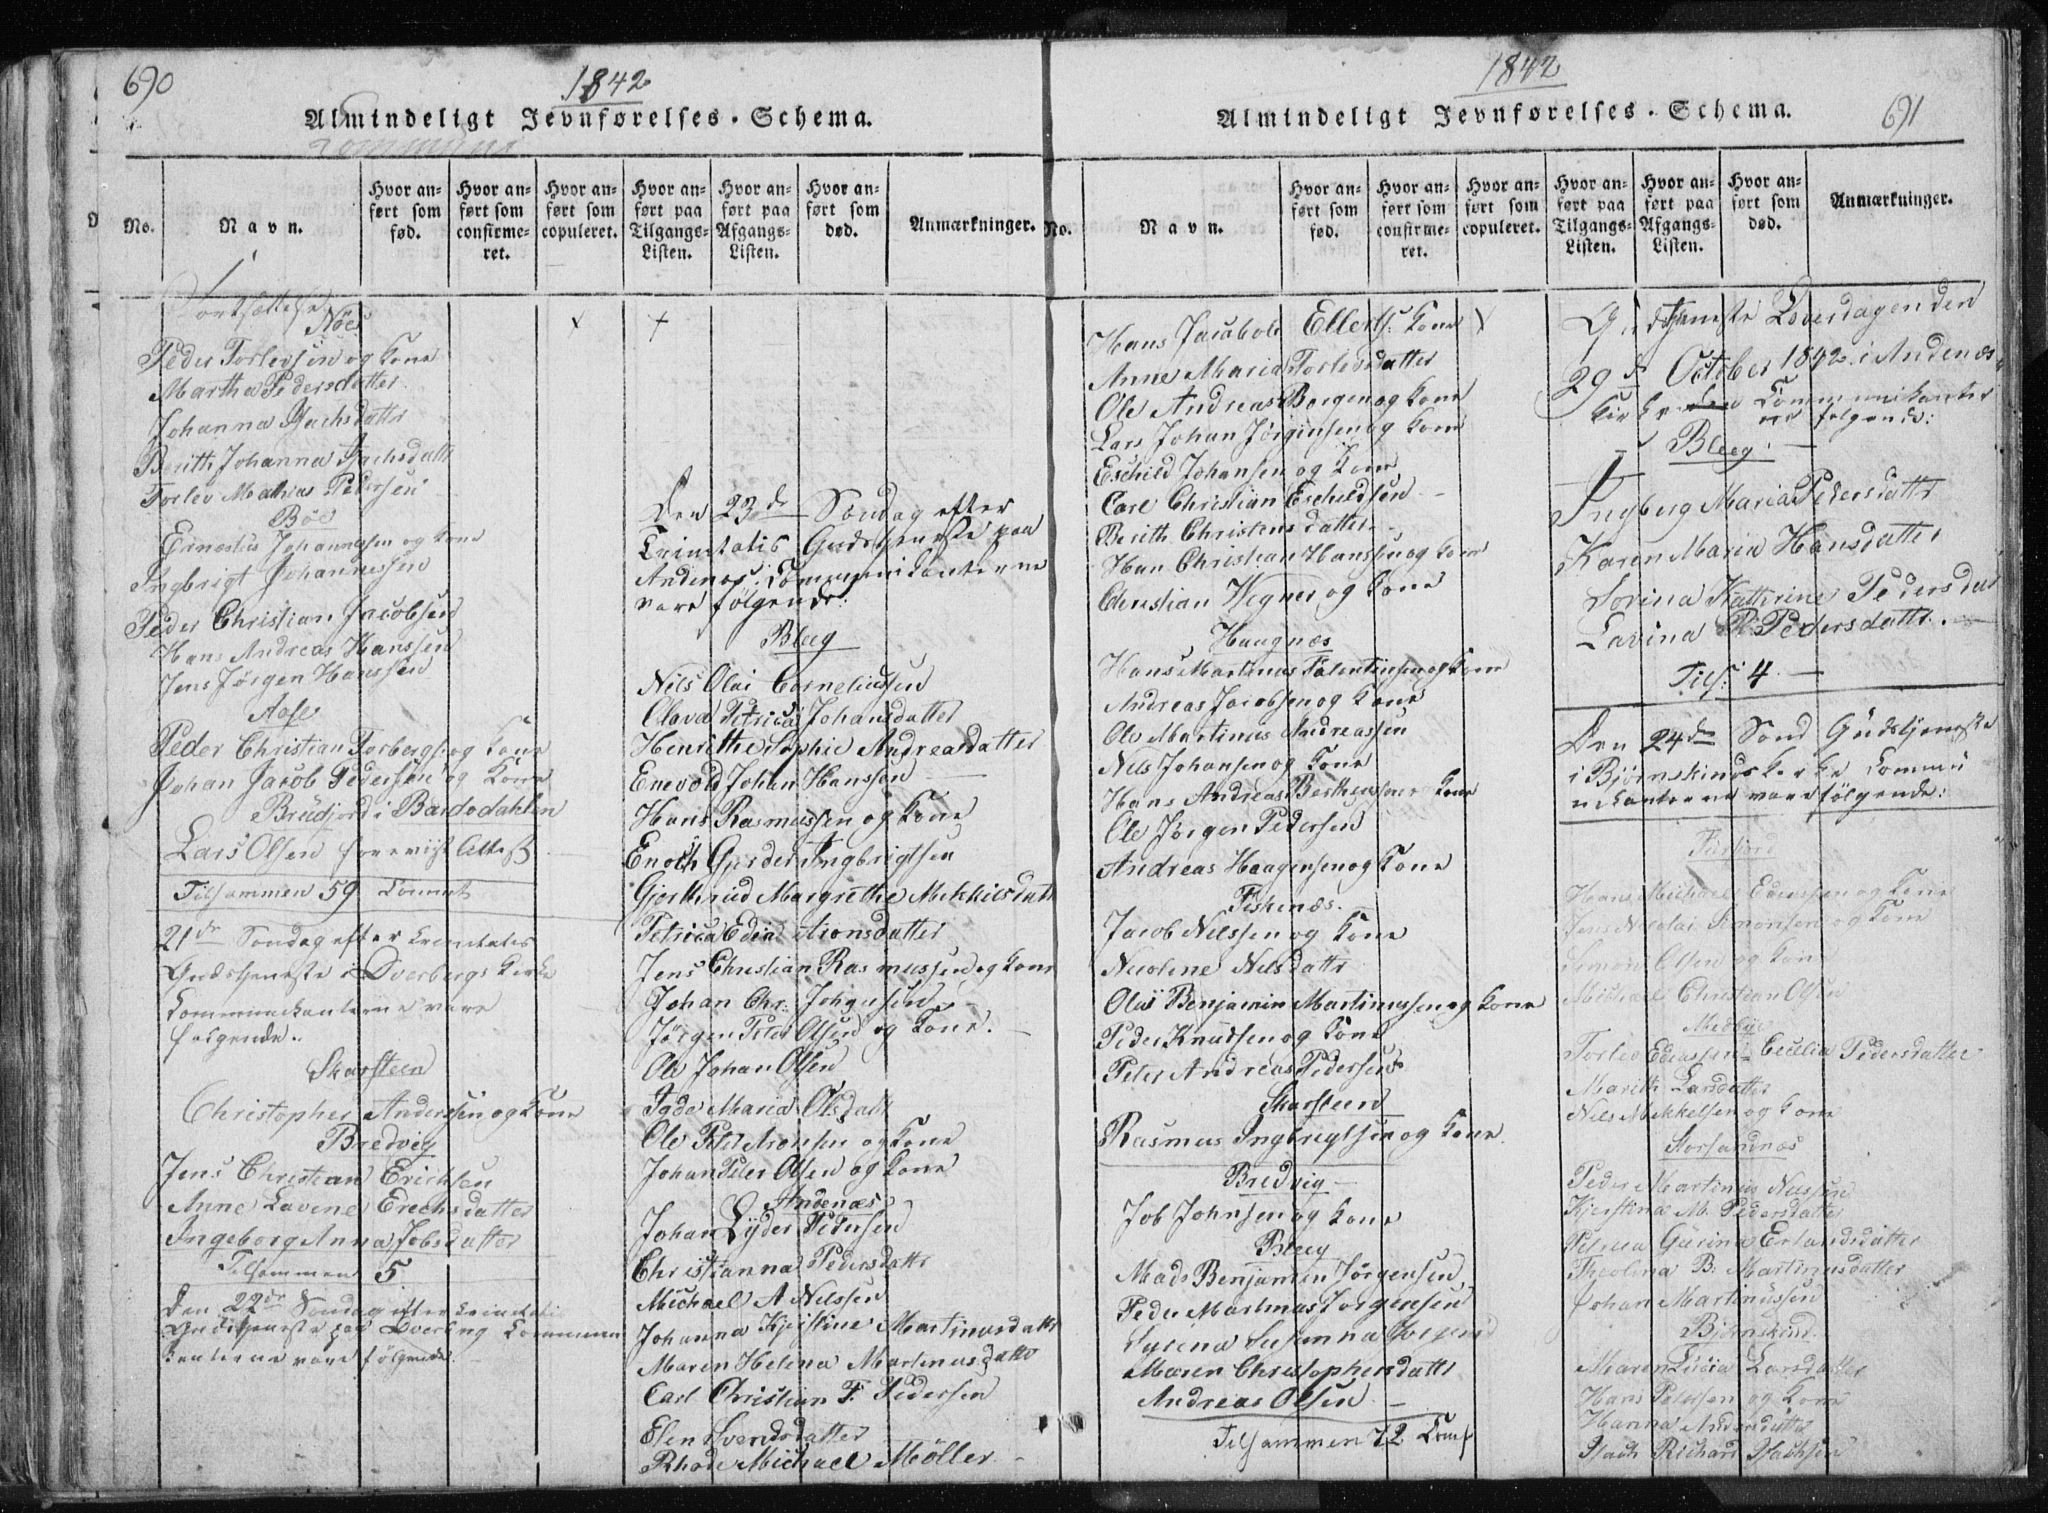 690
1842
Almindeligt Jevnførelses-Schema.
No.
Navn.
Hvor anført som fød.
Hvor anført som confirmeret.
Hvor anført som copuleret.
Hvor anført paa Tilgangs-Listen.
Hvor anført paa Afgangs-Listen.
Hvor anført som død.
Anmærkninger.
Fortsættelse
Nöes
Peder Torlevsen og Kone
Martha Pedersdatter
Johanna Isachsdattr
Berith Johanna Isachsdattr
Torlev Mathias Pedersen
Böe
Ernestus Johannesen og Kone
Ingbrigt Johannessen
Peder Christian Jacobsen
Hans Andreas Hanssen
Jens Jørgen Hanssen
Aase
Peder Christian Torbergs. og Kone
Johan Jacob Pedersen og Kone
Bredjord i Bardodahlen
Lars Olsen foreviist Attest
Tilsammen 59 Commt
21de Søndag efter Trinitatis
Gudstjeneste i Dverbergs Kirke
Communikanterne vare
følgende:
Skarsteen
Christopher Andersen og Kone
Bredvig
Jens Christian Ericksen
Anne Lavine Erechsdatter
Ingeborg Anna Jobsdatter
Tilsammen 5
Den 22de Søndag efter Trinitati
Gudstjeneste paa Dverberg Commun
kanterne vare følgende:
Den 23de Søndag efter
Trinitatis Gudstjeneste paa
Andenæs; Communikanterne
vare følgende:
Bleeg
Nils Olai Corneliussen
Olava Petrica Johansdatter
Henrithe Sophie Andreasdatter
Enevold Johan Hanssen
Hans Rasmussen og Kone
Enoch Gjerder Ingbrigtsen
Gjerthrud Margrethe Mekkilsdatt
Petrica Edia Aronsdatter
Jens Christian Rasmussen og Kone
Johan Chr: Johansen
Jørgen Peter Olsen og Kone.
Ole Johan Olsen
Maria Olsdatt
Ole Peter Aronsen og Kone
Johan Peter Olsen og Kone
Andenæs
Johan Lyder Pedersen
Christianna Pedersdattr
Michael A Nilssen
Johanna Kjerstine Martinusdatt
Maren Helena Martinusdatt
Carl Christian F. Pedersen
Elen Svendsdatter
Rhode Michael Møller
1842
691
Almindeligt Jevnførelses-Schema.
No.
Navn.
Hvor anført som fød.
Hvor anført som confirmeret.
Hvor anført som copuleret.
Hvor anført paa Tilgangs-Listen.
Hvor anført paa Afgangs-Listen.
Hvor anført som død.
Anmærkninger.
Hans Jacob Ellerts. Kone
Anne Maria Torlevsdatter
Ole Andreas Borgen og Kone
Lars Johan Jørgensen og Kone
Eschild Johansen og Kone
Carl Christian Eschildsen
Berith Christensdatter
Han Christian Hanssen og Kone
Christian Wegner og Kone
Haagnæs
Hans Martinus Valentinsen og Kone
Andreas Jacobsen og Kone
Ole Martinus Andreassen
Nils Johansen og Kone
Hans Andreas Kone
Ole Jørgen Pedersen
Andreas Haagensen og Kone
Fiskenæs.
Jacob Nilssen og Kone
Nicoline Nilsdattr
Olai Benjamin Martinussen og Kone
Peder Knudsen og Kone
Peter Andreas Pedersen
Skarsteen
Rasmus Ingbrigtsen og Kone
Bredvig
Job Johnsen og Kone
Bleeg
Mads Benjamin Jørgensen
Peder Martinus Jørgensen
Syrena Susanna Jørgens
Maren Christophersdatt
Andreas Olsen
Tilsammen 72 Com
Gudstjeneste Løverdagen den
29de October 1842 i Andenæs
Kirke Communikanter
ne følgende:
Bleeg
Ingberg Maria Pedersdattr
Karen Maria Hansdatter
Sorina Kathrine Pedersdat
Lavina P. Pedersdattr
Tils: 4
Den 24de Sønd Gudstjeneste
i Bjørnskinds Kirke Commu
nikanterne vare følgende:
Hans Michael og Kone
Jens Nicolai Simonsen og Kone
Simon Olsen og Kone
Michael Christian Olsen
Medbye
Torlev Cecilia Pedersdatter
Marith Larsdatter
Nils Mikkelsen og Kone
Storsandnæs
Peder Martinus Nilssen
Kjerstina M. Pedersdatter
Petrica Gurina Erlandsdatter
Theolina B: Martinusdatter
Johan Martinussen
Bjørnskind.
Maren Larsdatter
Hans Petersen og Kone
Hanna Andersdatter
Isach Richard Isachsen